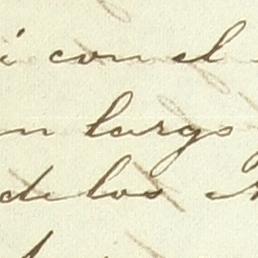 i con el
n largo
de los